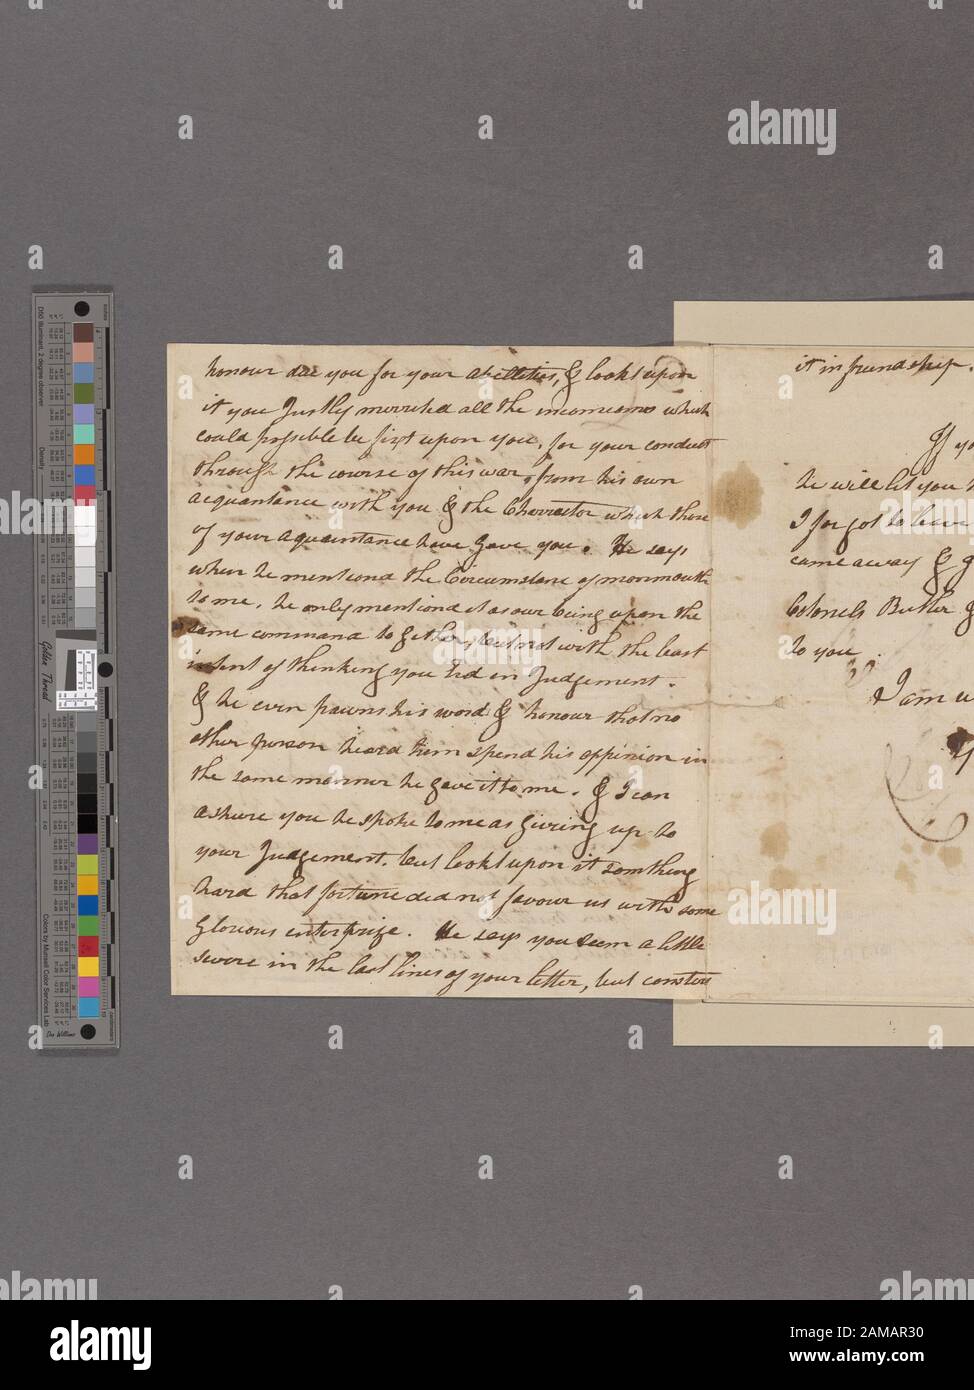 honour due you for your abellities, & lookt upon
it you Justly merrited all the incomiams which
could possible be fixt upon you, for your conduct
through the course of this war, from his own
acquantance with you & the Charrector which those
of your aquaintance have gave you. He says
when he mentiond the Circumstance of monmouth
to me, he only mentiond it as our being upon the
same command to gether, but not with the least
intent of thinking you Erd in Judgement.
& he even pawns his word & honour that no
other person heard him spend his oppinion in
the same manner he gave it to me. & I can
ashure you he spoke to me as giving up to
your Judgement. but lookt upon it somthing
hard that fortune did not favour us with some
Glorious enterprize. He says you seem a little
severe in the last lines of your letter, but consters
it in friendship.
If yo
he will let you
I forgot to leave
came away &
Colonels Butler &
to you
I am
alamy
Image ID: 2AMAR30
www.alamy.com